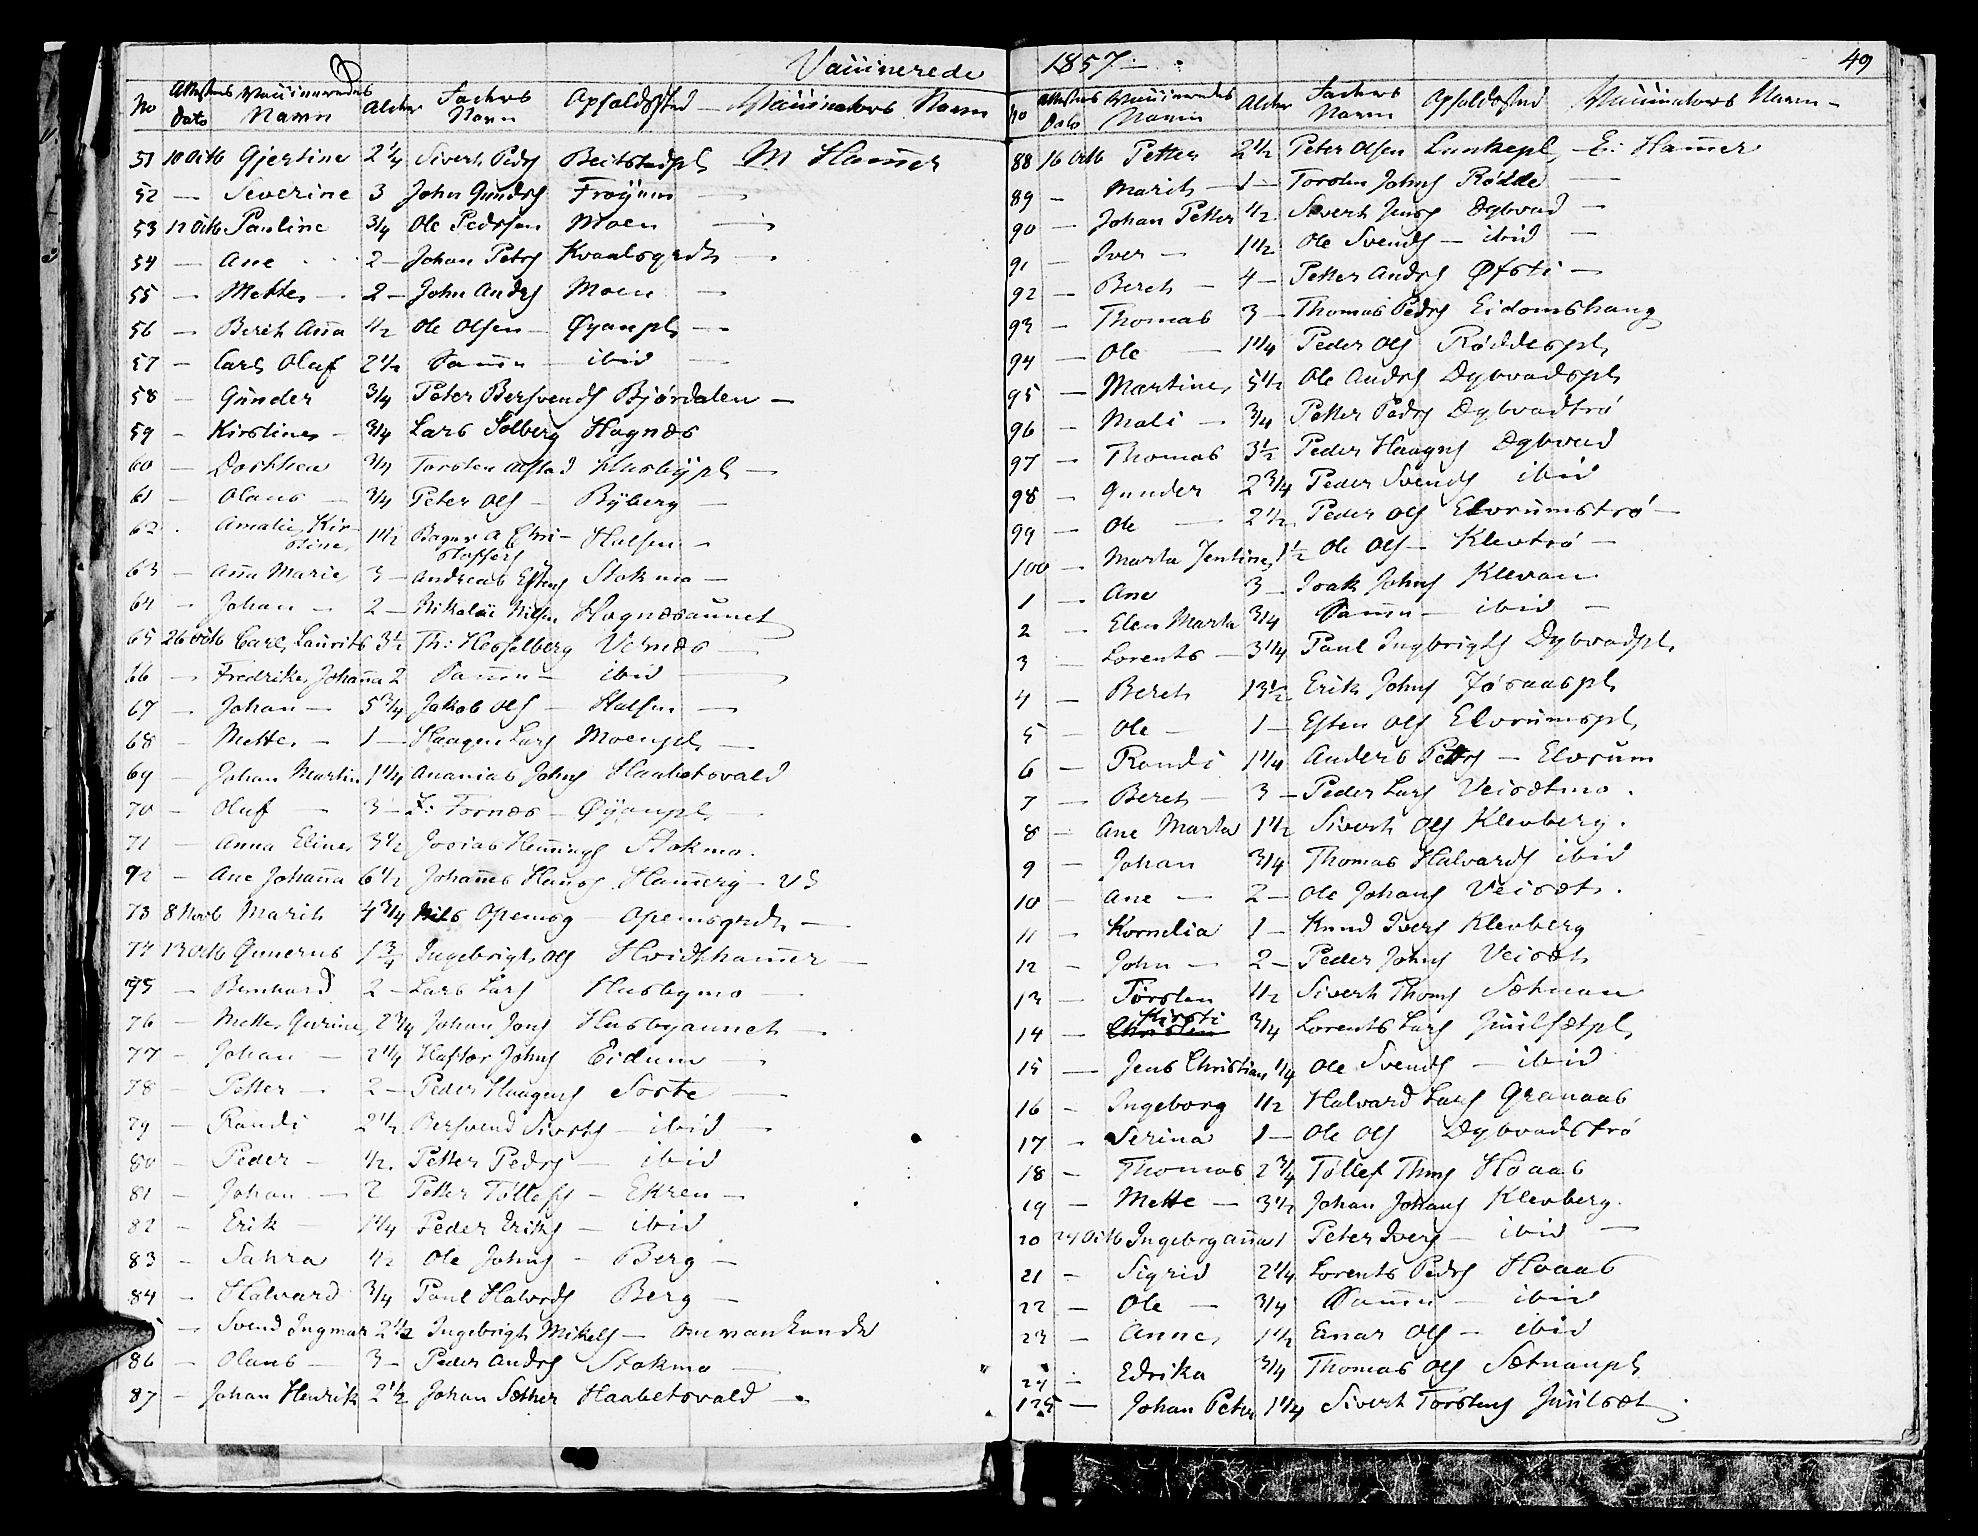 Vaccinerede
No Attestens Dato Vaccineredes Navn Alder Faders Navn Opholdsted Vaccinators Navn
51 10 Octb Gjertine 2 1/4 Sivert Peds Beitstadpl M Hamer
52 — Severine 3 John Gunds Frøynes —
53 12 Octb Pauline 3/4 Ole Pedersen Moen —
54 — Ane 2 — Johan Peters —
55 — Mette — 2 — John Anders Moen —
56 — Berit Anna 1/2 Ole Olsen — Øyanpl —
57 — Carl Oluf 2 1/2 Samme — ibid —
58 — Gunder 3/4 Peter Bersvends Bjørdalen —
59 — Kirstine — 3/4 Lars Solberg Hognæs
60 — Dorthea 3/4 Torsten Husbypl —
61 — Olaus — 3/4 Peter Ols — Byberg —
62 . Amalie Kirstine 1 1/2 Christoffers Halsen —
63 — Anna Marie 3 — Andreas Estens Stokmo —
64 — Johan — 2 — Nikolai Nilsen Hognæsaunet
65 26 Octb Carl Laurits 3 1/2 Th: Hesselberg Værnæs —
66 — Fredrike Johanna 2 Samme — ibid —
67 — Johan — 5 3/4 Jakob Ols — Halsen —
68 — Mette — 1 — Haagen Lars Moenspl —
69 — Johan Martin 1 1/4 Ananias Johns Haabetsvald
70 — Oluf — 3 — L: Fornæs — Øyanpl —
71 — Anna Eline 3 1/2 Josias Hemmings Stokmo.
72 — Ane Johanna 6 1/2 Johannes Hans
73 8 Novb Marit 4 3/4 Nils —
74 13 Octb Gunerus 1 3/4 Ingebrigt Ols Hvidthamer —
75 — Bernhard 2 — Lars Lars Husbymo —
76 — Mette Gurine 2 3/4 Johan Jons Husbyaunet —
77 — Johan — 2 1/4 Haftor Johns Eidum —
78 — Petter — 2 — Peder Haagens Sorte —
79 — Randi 2 1/2 Bersvend Siverts — ibid —
80 — Peder — 1/2 Petter Peders — ibid
81 — Johan — 2 Petter Tollefs — Ekren —
82 — Erik 1 1/4 Peder Eriks — ibid
83 — Sahra 1/2 Ole Johns — Berg —
84 — Halvard 3/4 Paul Halvords Berg —
5 — Svend Ingmar 2 1/2 Ingebrigt Mikels — omvankende
86 — Olaus — 3 — Peder Anders Stokmo —
87 — Johan Hendrik 2 1/2 Johan Sæther Haabetsvald —
1857 —
49
No Attestens Dato Vaccineredes Navn Alder Faders Navn Opholdsted Vaccinators Navn —
88 16 Octb Petter 2 1/2 Peter Olsen Lunkepl E: Hamer
89 — Marit — 1 — Torsten Johns Rødde —
90 — Johan Petter 1/2 Sivert Jens Dybvad —
91 — Iver — 1 1/2 Ole Svends — ibid —
92 — Beret — 4 — Petter Anders Øfsti —
93 — Thomas 3 — Thomas Peders Eidomshaug
94 — Ole 1 1/4 Peder Ols Røddespl
95 — Martine 5 1/2 Ole Anders Dybvadspl
96 — Mali — 3/4 Petter Peders Dybvadtrø
97 — Thomas 3 1/2 Peder Haagns Dybvad
98 — Gunder 2 3/4 Peder Svends ibid
99 — Ole — 2 1/2 Peder Ols Elvrumstrø —
100 — Marta Jentine 1 1/2 Ole Ols — Klevtrø —
1 — Ane 3 — Isak Johns Klevan
2 — Elen Marta 3/4 Samme — ibid —
3 — Lorents — 3 1/4 Paul Ingbrigts Dybvadpl
4 — Beret 13 1/2 Erik Johns Jøsaaspl
5 — Ole — 1 — Esten Ols Elvrumspl
6 — Randi 1 1/4 Anders Petters — Elvrum
7 — Beret — 3 — Peder Lars Veisætmo .
8 — Ane Marta 1 1/2 Sivert Ols Klevberg.
9 — Johan 3/4 Thomas Halvards ibid
10 — Ane — 2 — Ole Johans Veisæt .
11 — Kornelia 1 — Knud Ivers Klevberg
12 — John — 2 — Peder Johns Veisæt
13 — Torsten 1/2 Sivert Thoms Sætnan
14 — Kirsti 3/4 Lorents Lars Juulsætpl
15 — Jens Christian 1/4 Ole Svends — ibid
16 — Ingeborg 1/2 Halvard Lars Granaas
17 — Serina 1 — Ole Ols Dybvadstrø
18 — Thomas 2 3/4 Tollef Thms Hoaas
19 — Mette — 3 1/2 Johan Johans Klevberg.
20 24 Octb Ingebrg Anna 1 Peter Ivers — ibid —
21 — Sigrid 2 1/4 Lorents Peders Hoaas
22 — Ole — 3/4 Samme — ibid
23 — Anne 1 1/2 Einar Ols — ibid
24 — Edrika 3/4 Thomas Ols Sætnanpl
125 — Johan Peter 1 1/4 Sivert Torstens Juulsæt.